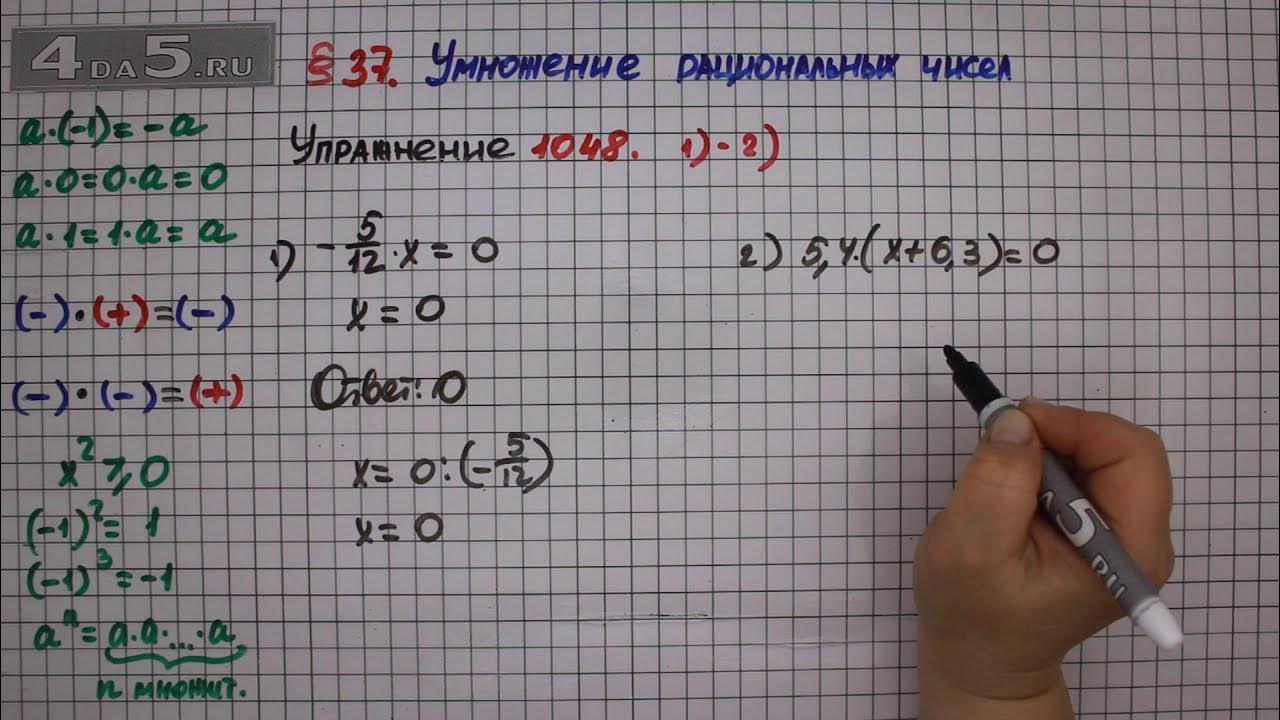 4DA5.RU
§ 37. Умножение рациональных чисел
Упражнение 1048. 1)-2)
a·(-1)=-a
a·0=0·a=0
a·1=1·a=a
(-)·(+)=(-)
(-)·(-)=(+)
x²⩾0
(-1)²=1
(-1)³=-1
aⁿ=a·a·...·a
n множит.
1) -5/12·x=0
x=0
Ответ: 0
x=0:(-5/12)
x=0
2) 5,4·(x+6,3)=0
5
RU